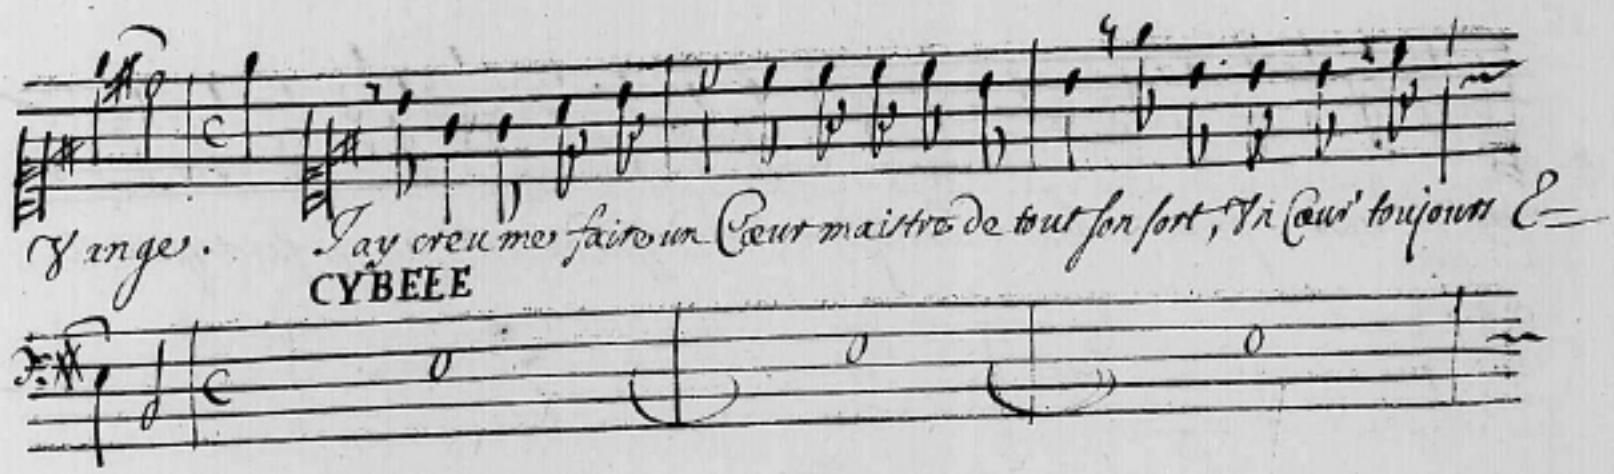 Vange. J'ay creu me faire un Cœur maistre de tout son sort, Un Cœur toujours
CYBELE